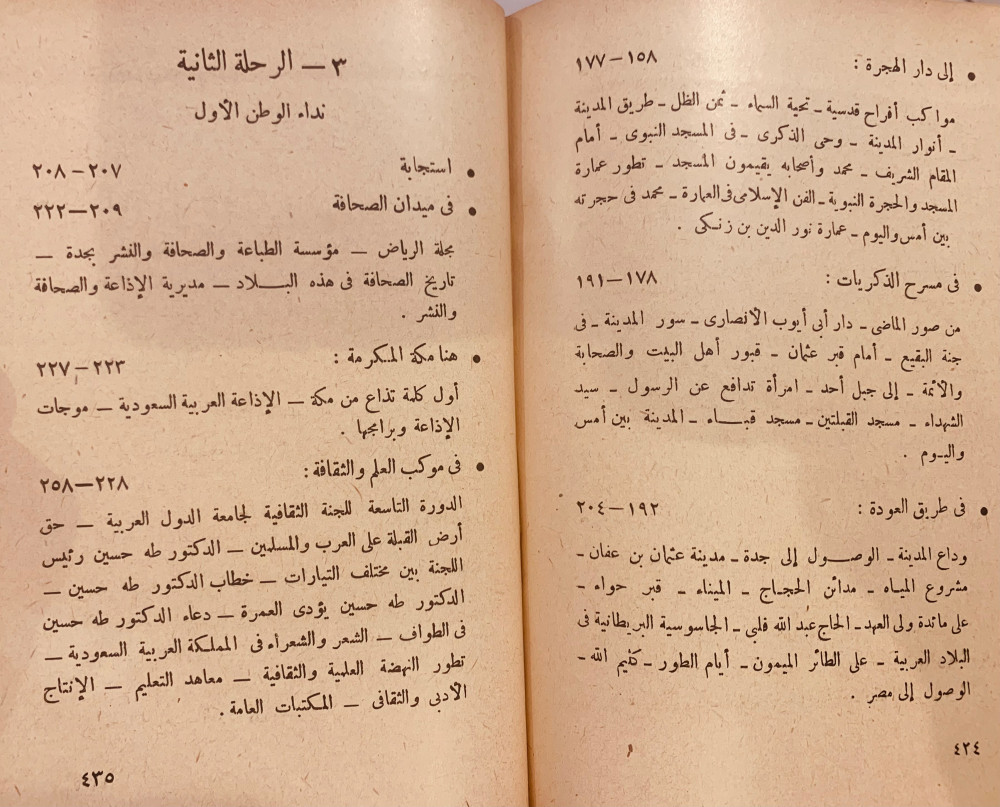 • إلى دار الهجرة : ١٥٨—١٧٧
مواكب أفراح قدسية ـ تحية السماء ـ ثمن الظل ـ طريق المدينة
ـ أنوار المدينة ـ وحى الذكرى ـ فى المسجد النبوى ـ أمام
المقام الشريف ـ محمد وأصحابه يقيمون المسجد ـ تطور عمارة
المسجد والحجرة النبوية ـ الفن الإسلامى فى العمارة ـ محمد فى حجرته
بين أمس واليوم ـ عمارة نور الدين بن زنكى .
• فى مسرح الذكريات : ١٧٨—١٩١
من صور الماضى ـ دار أبى أيوب الأنصارى ـ سور المدينة ـ فى
جنة البقيع ـ أمام قبر عثمان ـ قبور أهل البيت والصحابة
والأئمة ـ إلى جبل أحد ـ امرأة تدافع عن الرسول ـ سيد
الشهداء ـ مسجد القبلتين ـ مسجد قبـــاء ـ المدينة بين أمس
واليـوم .
• فى طريق العودة : ١٩٢—٢٠٤
وداع المدينة ـ الوصـــول إلى جدة ـ مدينة عثمان بن عفان ـ
مشروع الميـاه ـ مدائن الحجـاج ـ الميناء ـ قبر حواء ـ
على مائدة ولى العهد ـ الحاج عبد الله فلبى ـ الجاسوسية البريطانية فى
البلاد العربية ـ على الطائر الميمون ـ أيام الطور ـ كليم الله ـ
الوصول إلى مصر .
٤٢٤
٣ — الرحلة الثانية
نداء الوطن الأول
• استجابة ٢٠٧—٢٠٨
• فى ميدان الصحافة ٢٠٩—٢٢٢
مجلة الرياض — مؤسسة الطباعة والصحافة والنشر بجدة —
تاريخ الصحافة فى هذه البـــلاد — مديرية الإذاعة والصحافة
والنشر .
• هنا مكة المـكرمة : ٢٢٣—٢٢٧
أول كلمة تذاع من مكة — الإذاعة العربية السعودية — موجات
الإذاعة وبرامجها .
• فى موكب العلم والثقافة : ٢٢٨—٢٥٨
الدورة التاسعة للجنة الثقافية لجامعة الدول العربية — حق
أرض القبلة على العرب والمسلمين — الدكتور طه حسين رئيس
اللجنة بين مختلف التيارات — خطاب الدكتور طه حسين —
الدكتور طه حسين يؤدى العمرة — دعاء الدكتور طه حسين
فى الطواف — الشعر والشعراء فى المملكة العربية السعودية —
تطور النهضة العلمية والثقافية — معاهد التعليم — الإنتاج
الأدبى والثقافى — المـكتبات العامة .
٤٣٥